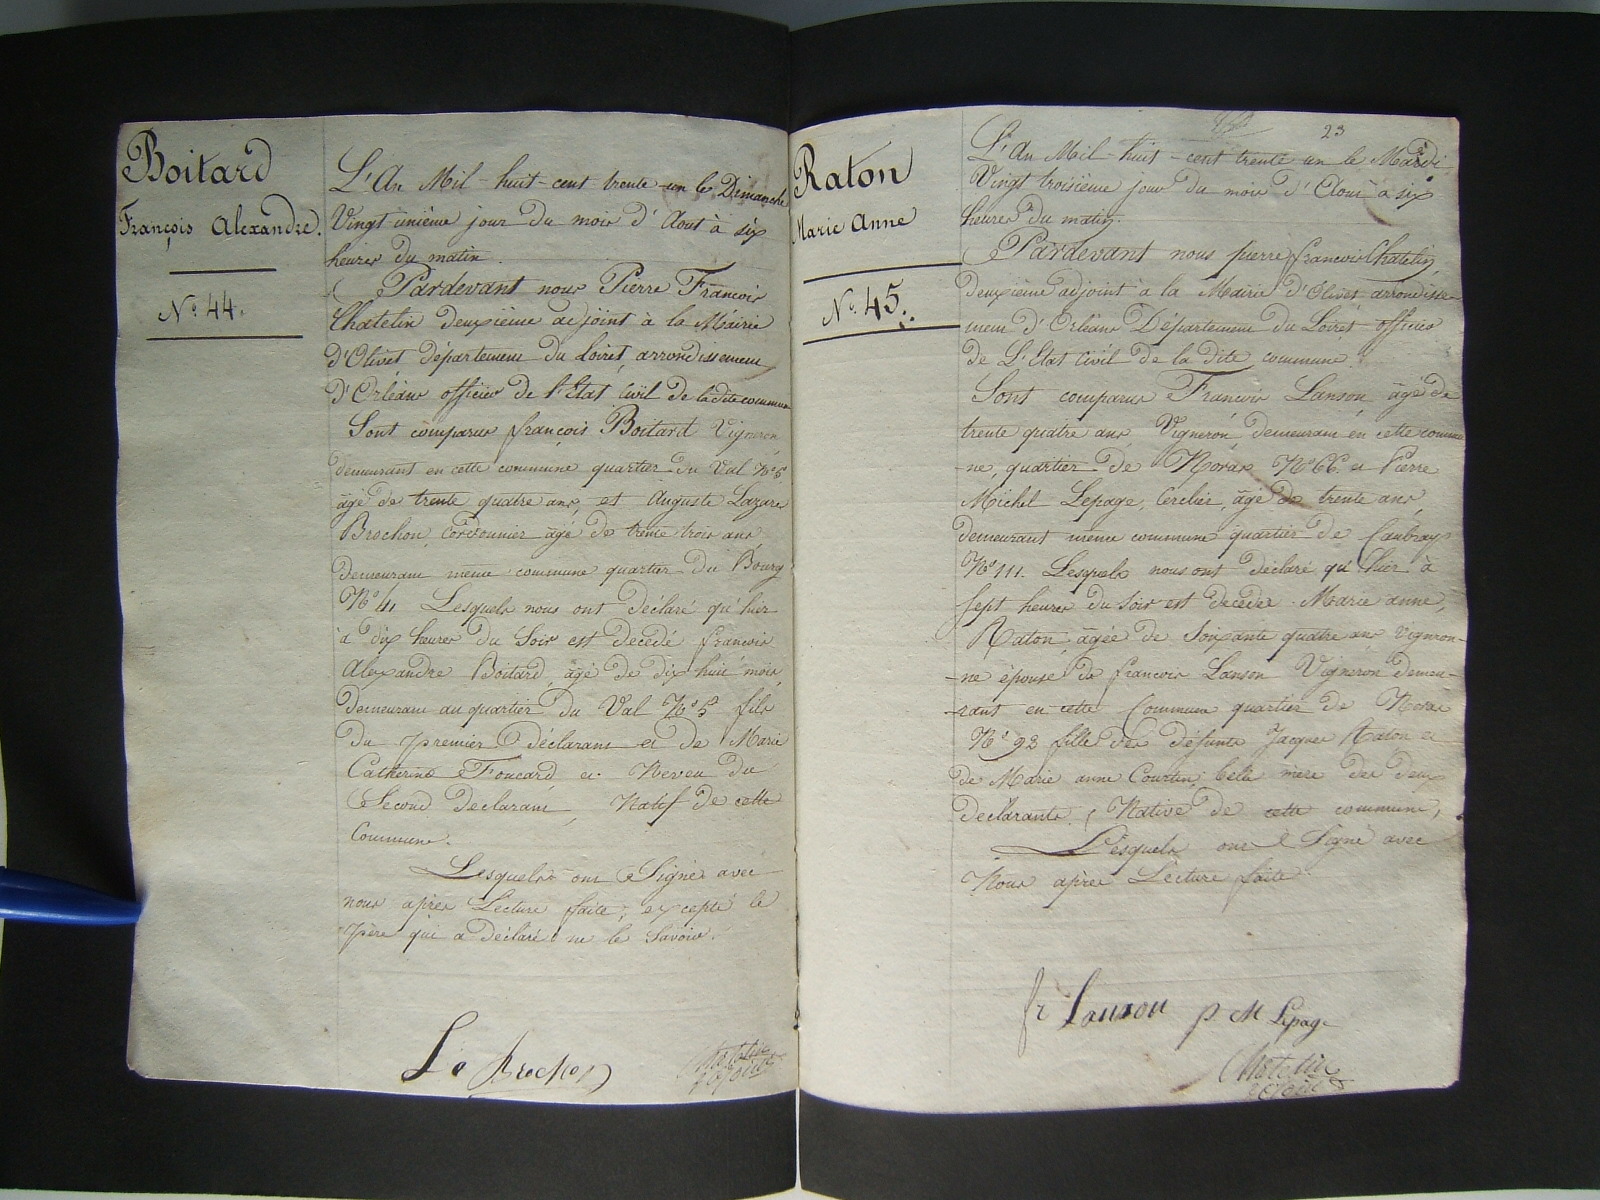 Boitard
François Alexandre.
N.º 44.
L'An Mil-huit-cent trente-un le Dimanche
Vingt unième jour du mois d'Aout à six
heures du matin.
Pardevant nous Pierre François
Chatelin deuxième adjoint à la Mairie
d'Olivet département du Loiret, arrondissement
d'Orléans officier de l'Etat Civil de la dite commune
Sont comparus françois Boitard Vigneron,
demeurant en cette commune quartier du Val Nº 5
âgé de trente quatre ans, et Auguste Lazare
Brochon, Cordonnier âgé de trente trois ans
demeurant meme commune quartier du Bourg
Nº 41 Lesquels nous ont déclaré qu'hier
à dix heures du Soir est décédé françois
Alexandre Boitard, âgé de dix huit mois,
demeurant au quartier du Val Nº 5 fils
du premier déclarant et de Marie
Catherine Foucard et Neveu du
Second Declarant, Natif de cette
Commune.
Lesquels ont Signé avec
nous après Lecture faite, excepté le
père qui a déclaré ne le Savoir.
Chatelin
adjoint
Raton
Marie Anne
N.º 45.
23
L'An Mil-huit-cent trente un le Mardi
Vingt troisième jour du mois d'Aout à six
heures du matin.
Pardevant nous pierre françois Chatelin,
deuxième adjoint à la Mairie d'Olivet arrondisse-
ment d'Orléans Département du Loiret officier
de L'Etat Civil de la dite commune.
Sont comparus François Lanson âgé de
trente quatre ans Vigneron, demeurant en cette commu
-ne, quartier de Noras Nº 66. et Pierre
Michel Lepage, Cerclier, âgé de trente ans,
demeurant meme commune quartier de Caubray
Nº 111. Lesquels nous ont déclaré qu'hier à
Sept heures du soir est décédée Marie anne,
Raton, âgée de Soixante quatre ans Vigneron-
-ne épouse de françois Lanson Vigneron demeu-
-rant en cette Commune quartier de Noras
Nº 92 fille des défunts Jacques Raton et
de Marie anne Courtin, belle mère des deux
déclarants. Native de cette commune,
Lesquels ont Signé avec
Nous après Lecture faite
fr Lanson p. M Lepage
Chatelin
adjoint